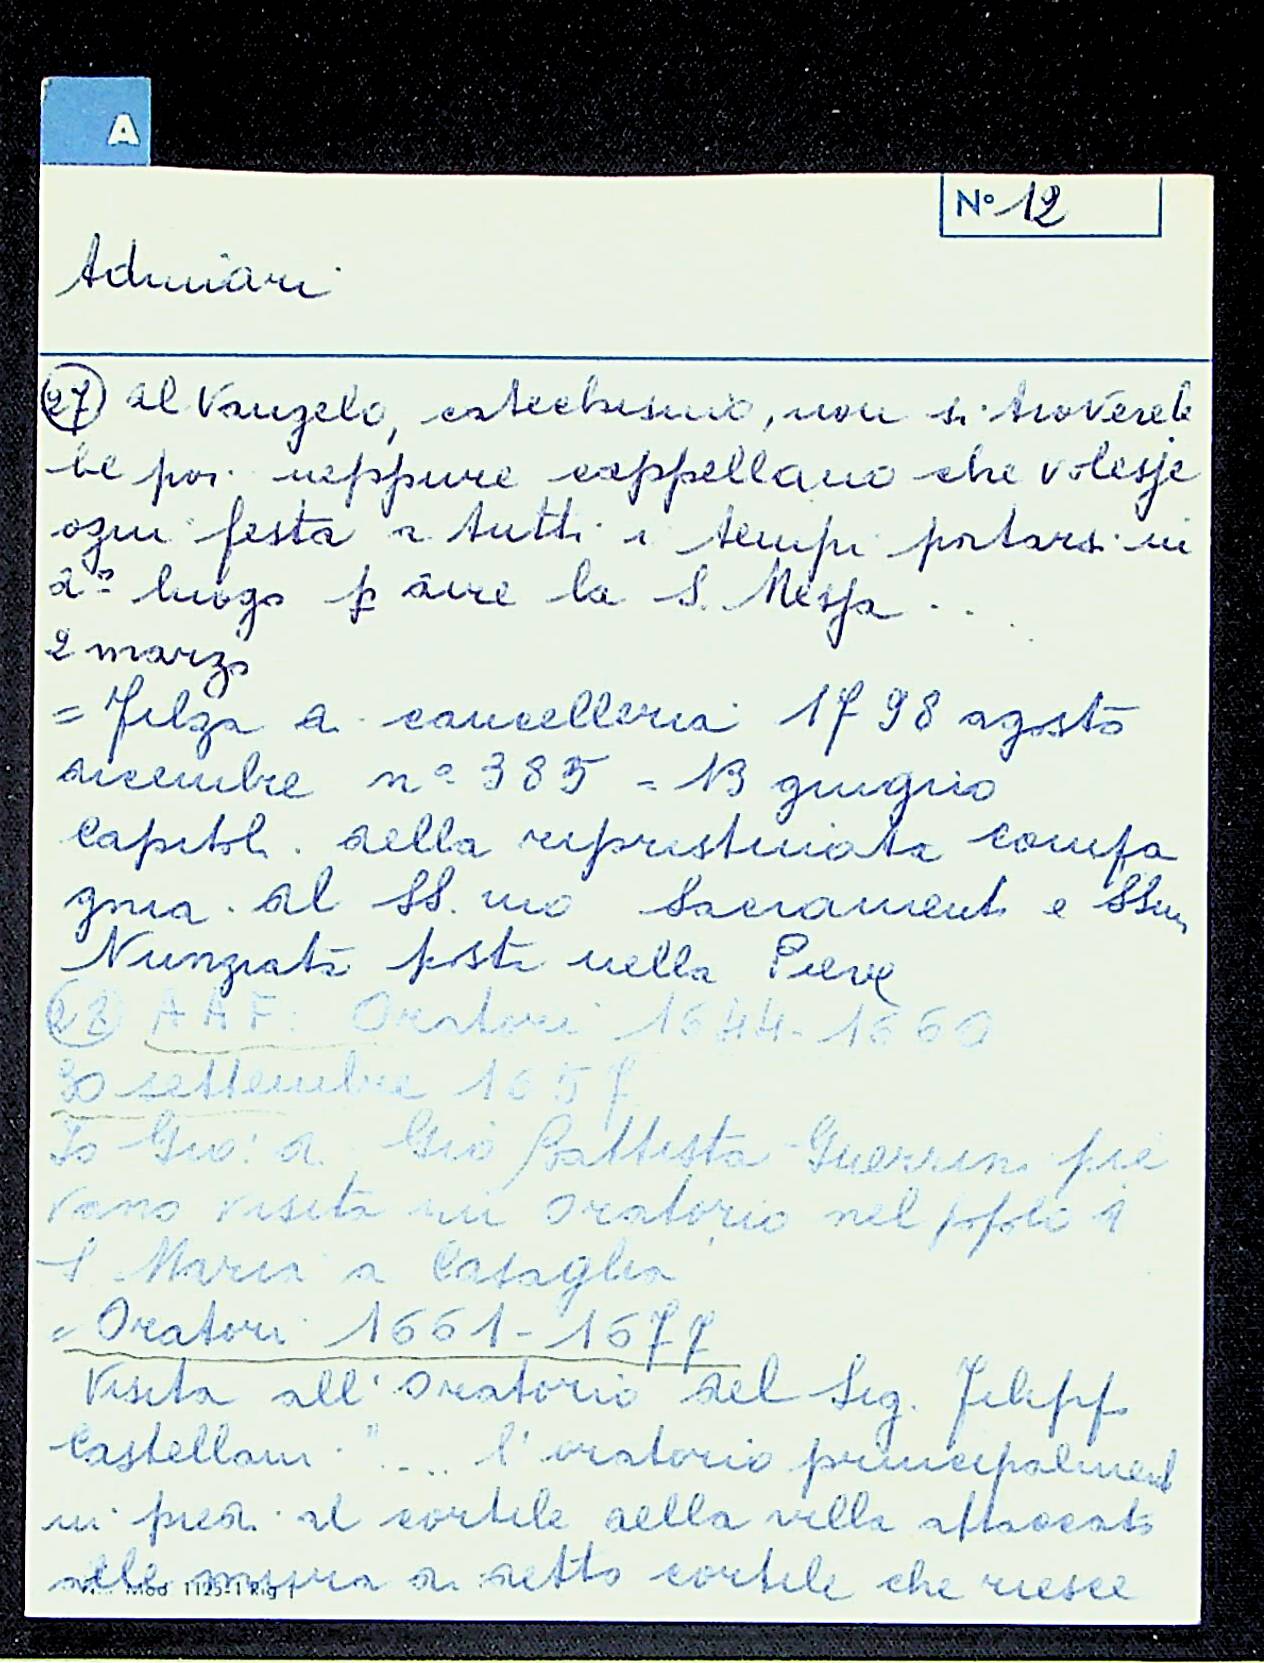 A
N° 12
Adimari
27 al Vangelo, catechismo, non si trovereb
be poi neppure cappellano che volesse
ogni festa a tutti i tempi portarsi in
d.° luogo p dire la S. Messa ..
2 marzo
= Filza di cancelleria 1798 agosto
dicembre n° 385 = 13 giugno
Capitoli della ripristinata compa
gnia del SS.mo Sacramento e SSma
Nunziata posta nella Pieve
28 AAF: Oratori 1644-1660
30 settembre 1657
Io Gio: di Gio Battista Guerrini pie
vano visita un oratorio nel popolo di
S Maria a Casaglia
= Oratori 1661-1677
Visita all'oratorio del Sig. Filippo
Castellani "... l'oratorio principalmente
in piedi al cortile della villa attaccato
alle mura di detto cortile che riesce
Mod 1125-1 Rig f